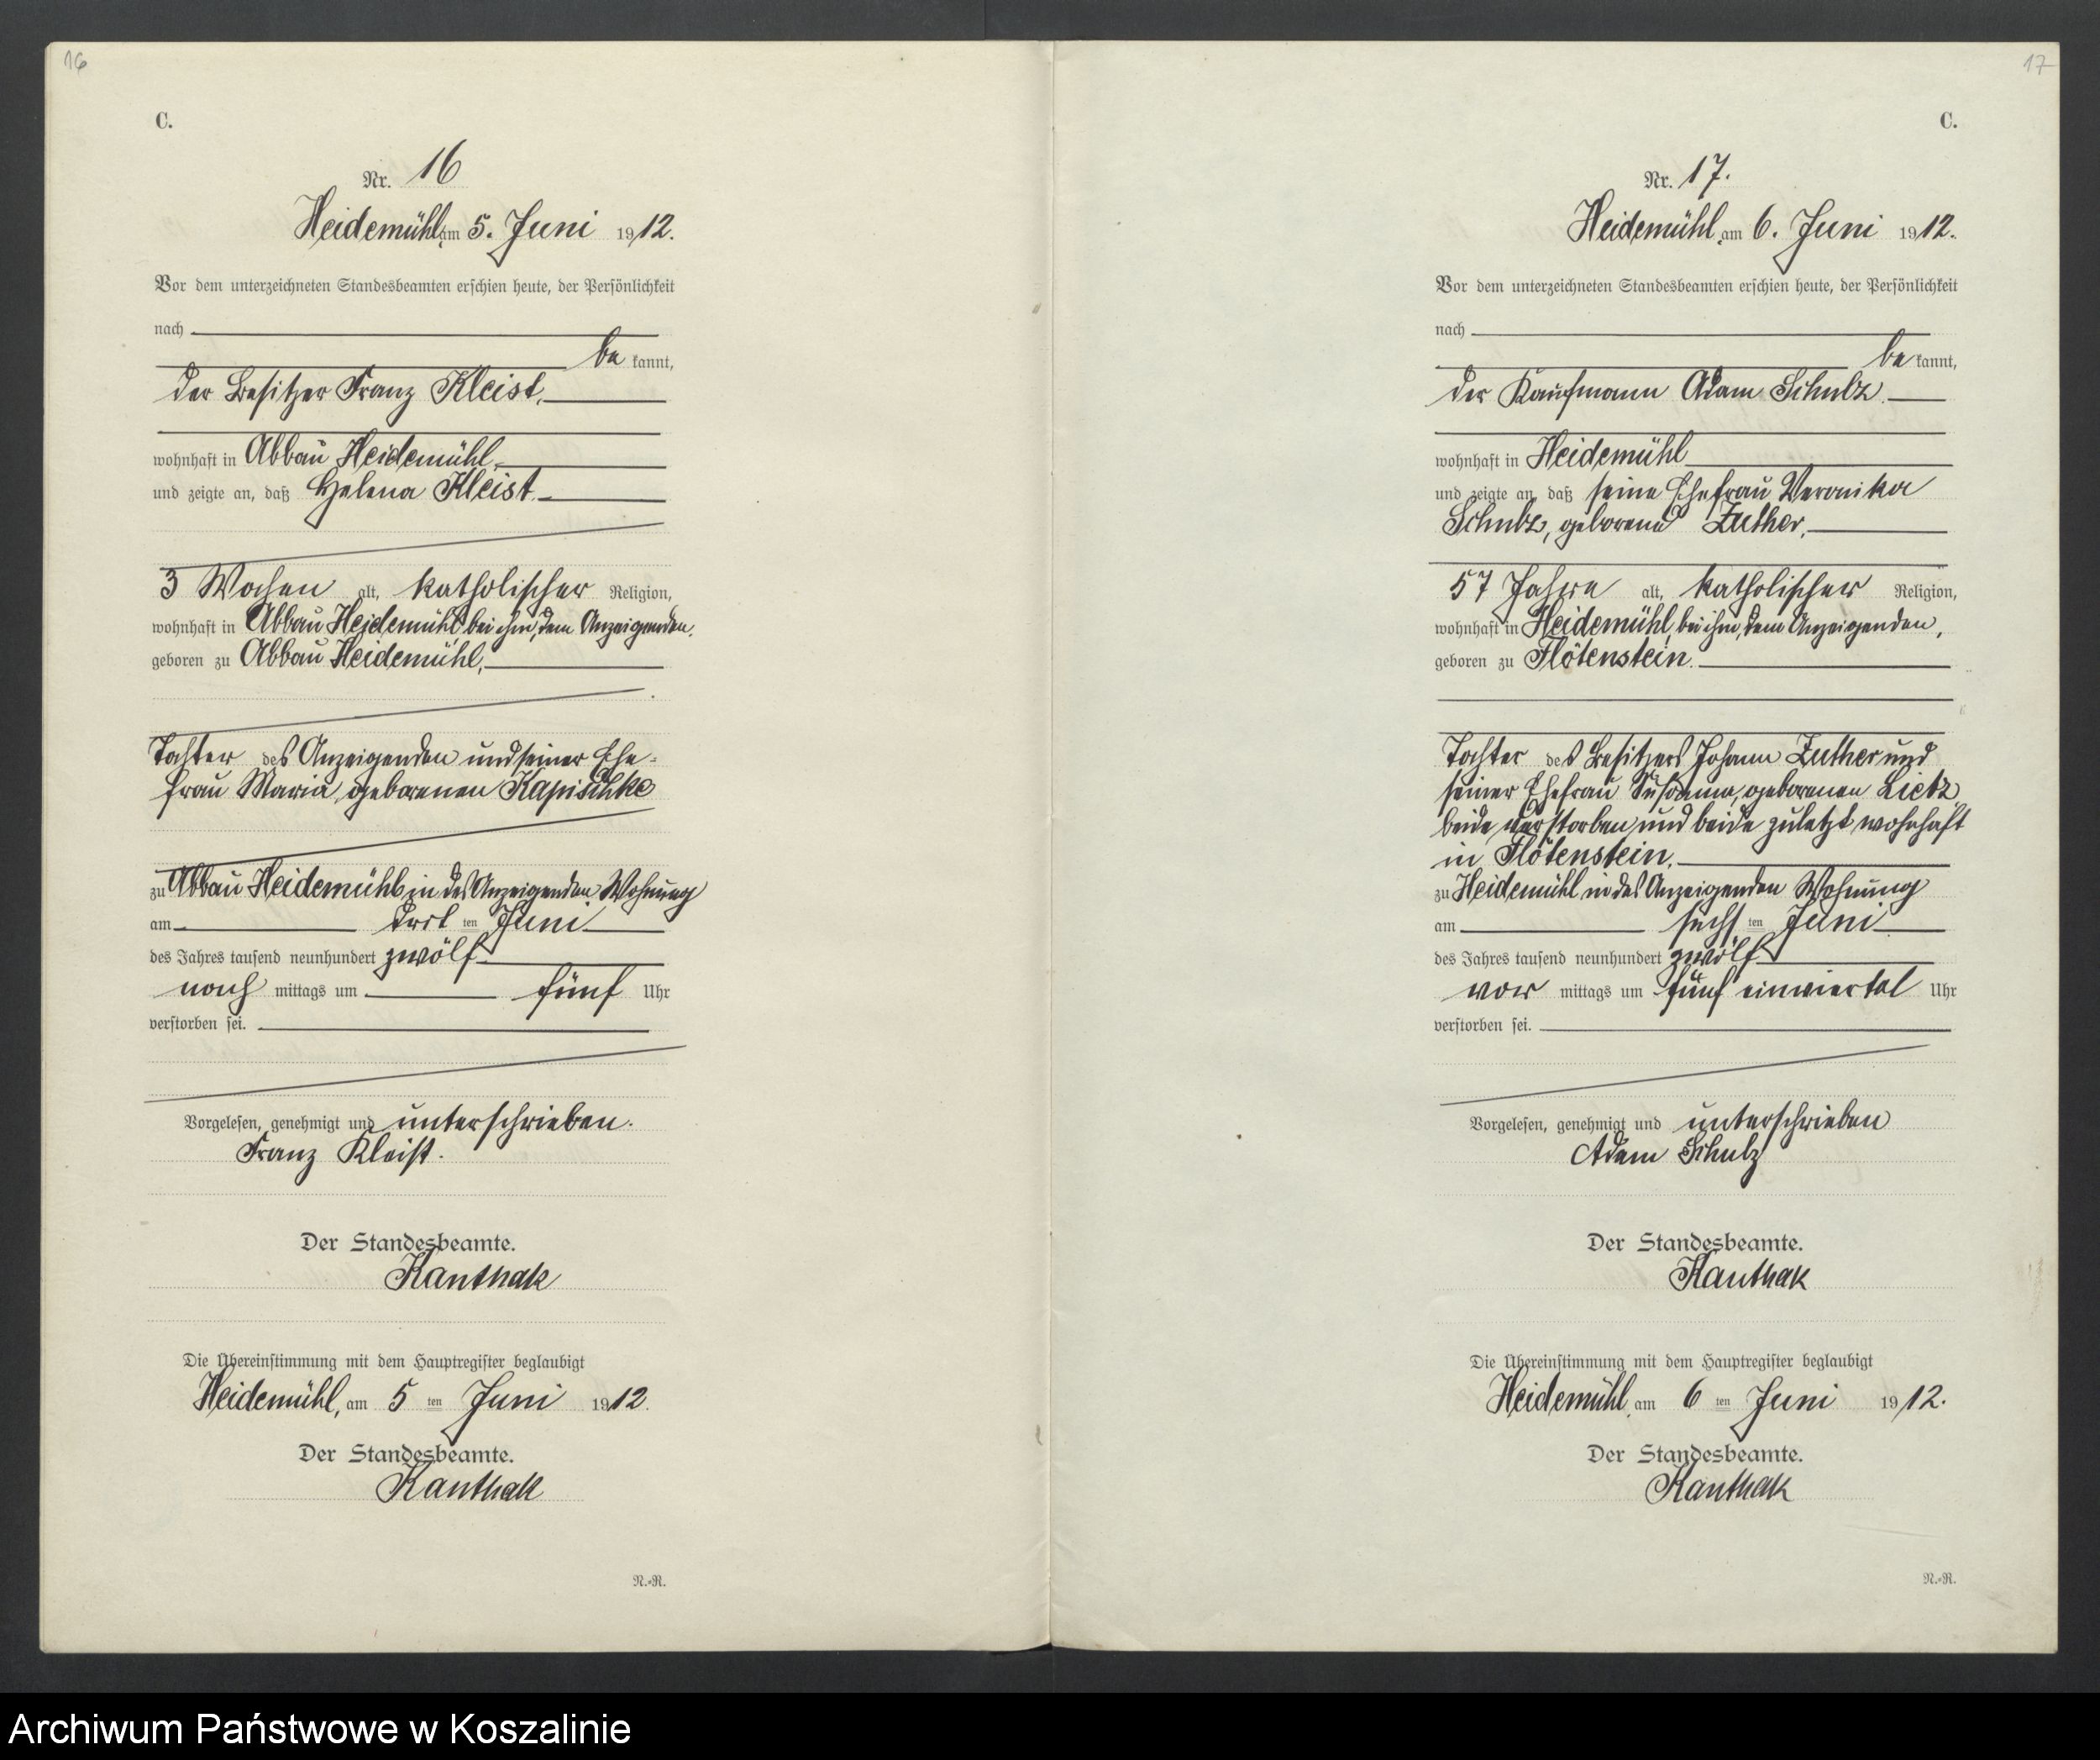 16
C.
Nr. 16
Heidemühl, am 5. Juni 1912.
Vor dem unterzeichneten Standesbeamten erschien heute, der Persönlichkeit
nach
be kannt,
der Besitzer Franz Kleist,
wohnhaft in Abbau Heidemühl,
und zeigte an, daß Helena Kleist
3 Wochen alt, katholischer Religion,
wohnhaft in Abbau Heidemühl bei ihm, dem Anzeigenden,
geboren zu Abbau Heidemühl,
Tochter des Anzeigenden und seiner Ehe-
frau Maria, geborenen Kapischke
zu Abbau Heidemühl, in des Anzeigenden Wohnung
am ten Juni
des Jahres tausend neunhundert zwölf
nach mittags um fünf Uhr
verstorben sei.
Vorgelesen, genehmigt und unterschrieben.
Franz Kleist.
Der Standesbeamte.
Kanthak
Die Übereinstimmung mit dem Hauptregister beglaubigt
Heidemühl, am 5 ten Juni 1912.
Der Standesbeamte.
Kanthak
N.-R.
17
C.
Nr. 17.
Heidemühl, am 6. Juni 1912.
Vor dem unterzeichneten Standesbeamten erschien heute, der Persönlichkeit
nach
be kannt,
der Kaufmann Adam Schulz
wohnhaft in Heidemühl
und zeigte an, daß seine Ehefrau Veronika
Schulz, geborene Zuther,
57 Jahre alt, katholischer Religion,
wohnhaft in Heidemühl, bei ihm, dem Anzeigenden,
geboren zu Flötenstein.
Tochter des Besitzers Johann Zuther und
seiner Ehefrau Susanna, geborenen Lietz
beide verstorben und beide zuletzt wohnhaft
in Flötenstein,
zu Heidemühl in des Anzeigenden Wohnung
am sechs ten Juni
des Jahres tausend neunhundert zwölf
vor mittags um fünf einviertel Uhr
verstorben sei.
Vorgelesen, genehmigt und unterschrieben
Adam Schulz
Der Standesbeamte.
Kanthak
Die Übereinstimmung mit dem Hauptregister beglaubigt
Heidemühl, am 6 ten Juni 1912.
Der Standesbeamte.
Kanthak
N.-R.
Archiwum Państwowe w Koszalinie